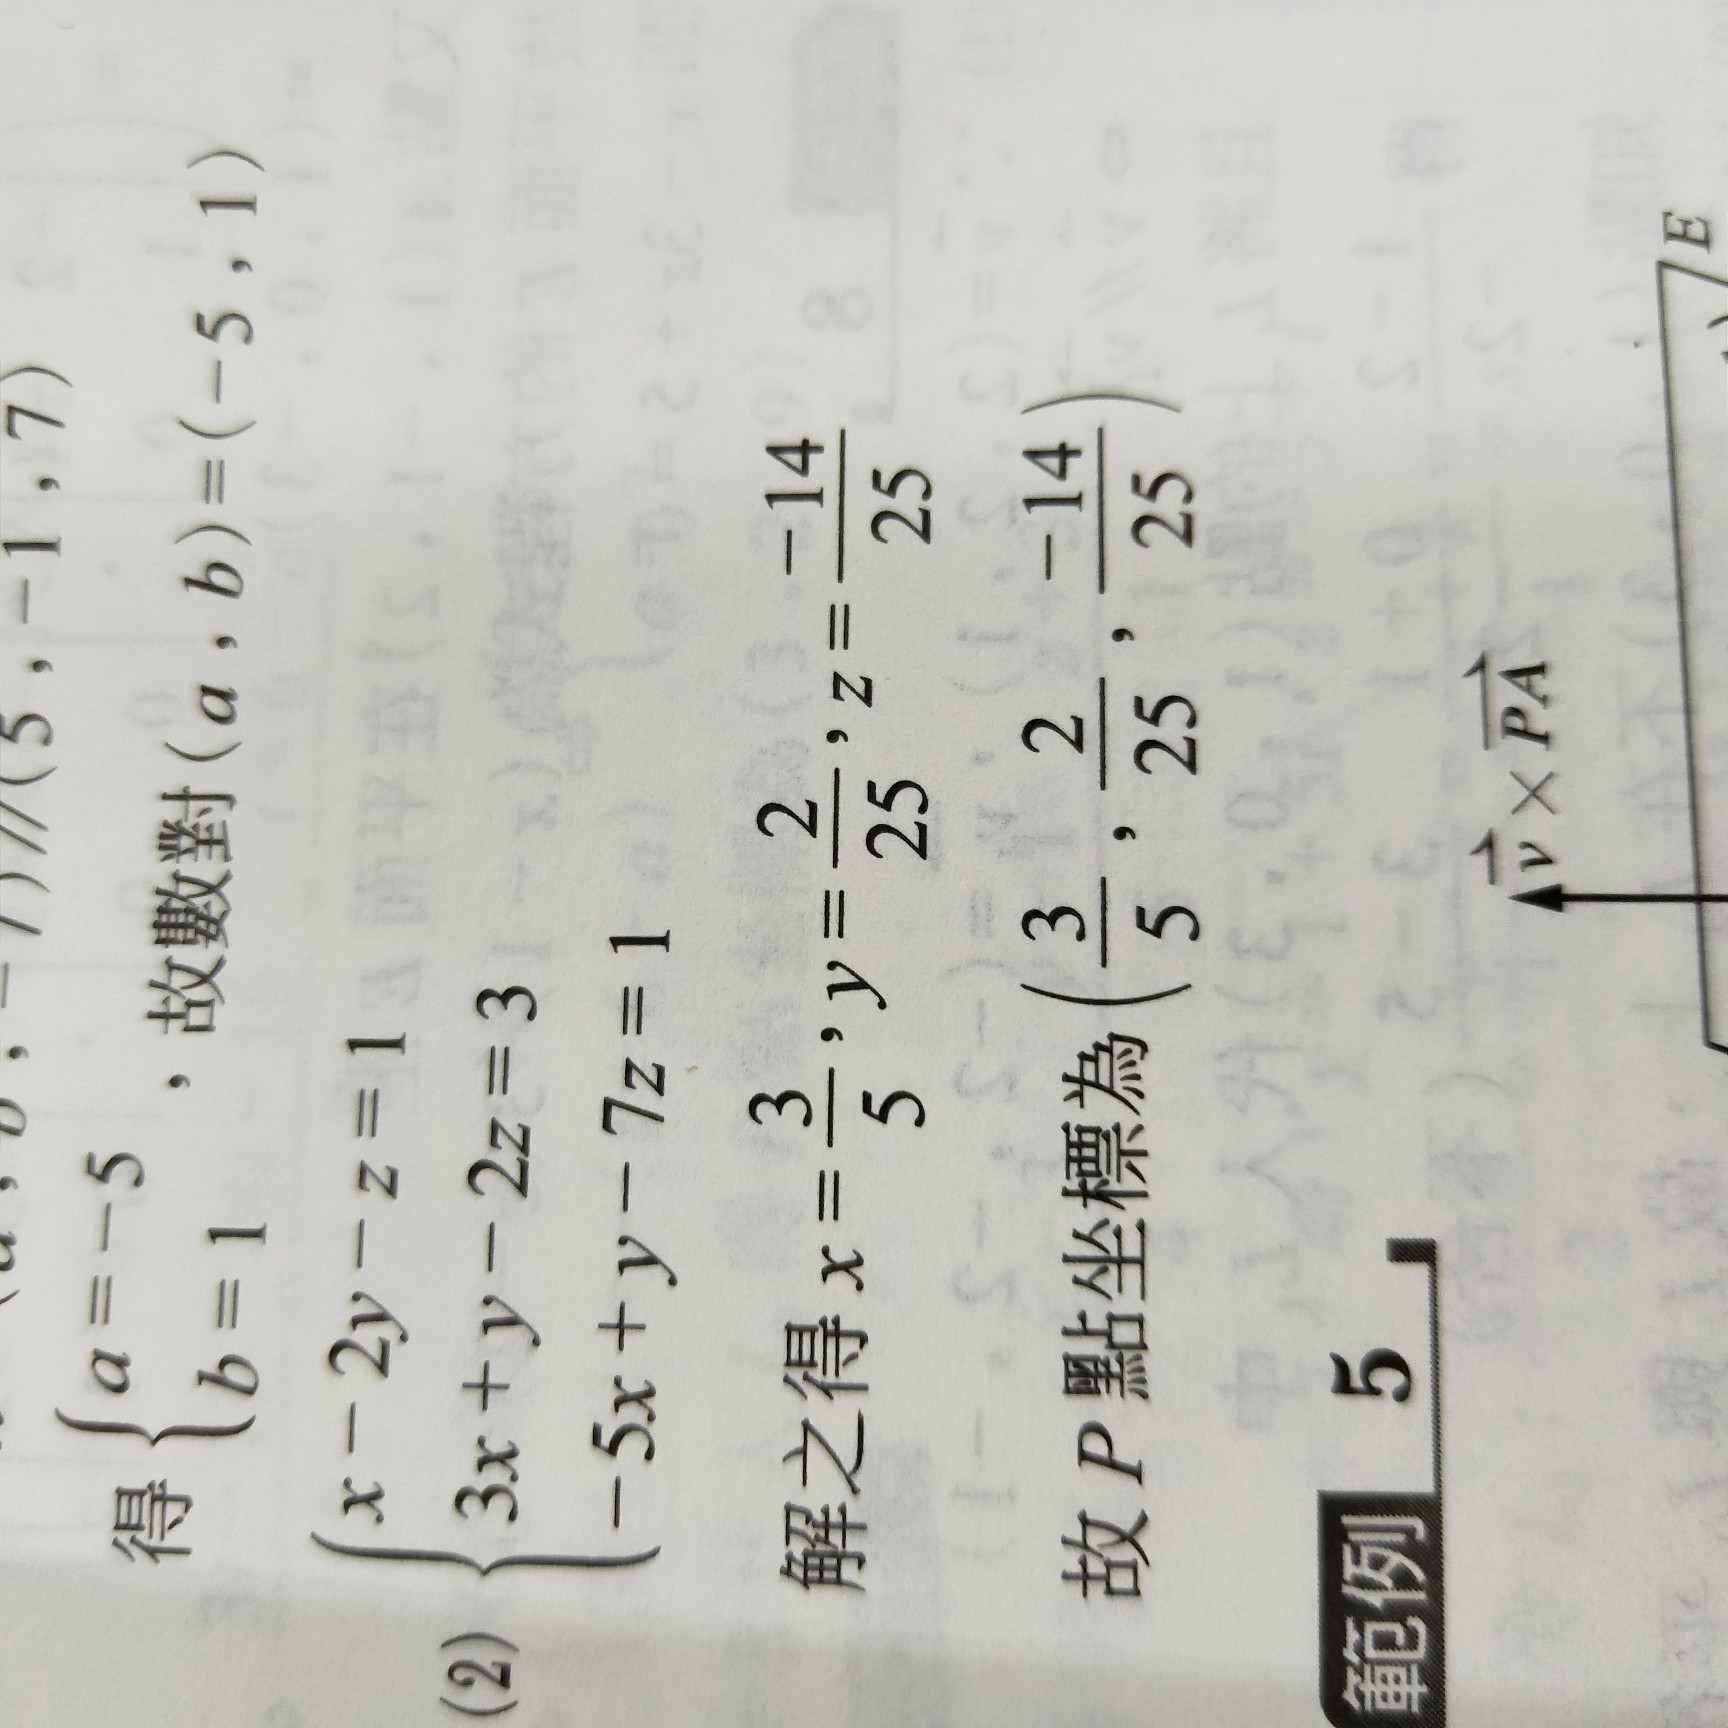 //(5 , −1 , 7)
得 { a = −5
b = 1 ，故數對 (a , b) = (−5 , 1)
(2) { x − 2y − z = 1
3x + y − 2z = 3
−5x + y − 7z = 1
解之得 x = 3/5 , y = 2/25 , z = −14/25
故 P 點坐標為 (3/5 , 2/25 , −14/25)
範例 5
v⃗ × PA⃗
E